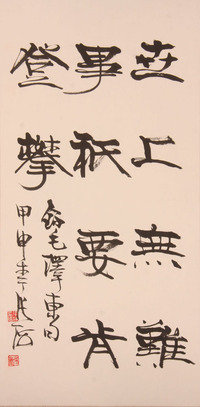 世上無難
事祇要肯
登攀
錄毛澤東句
甲申李